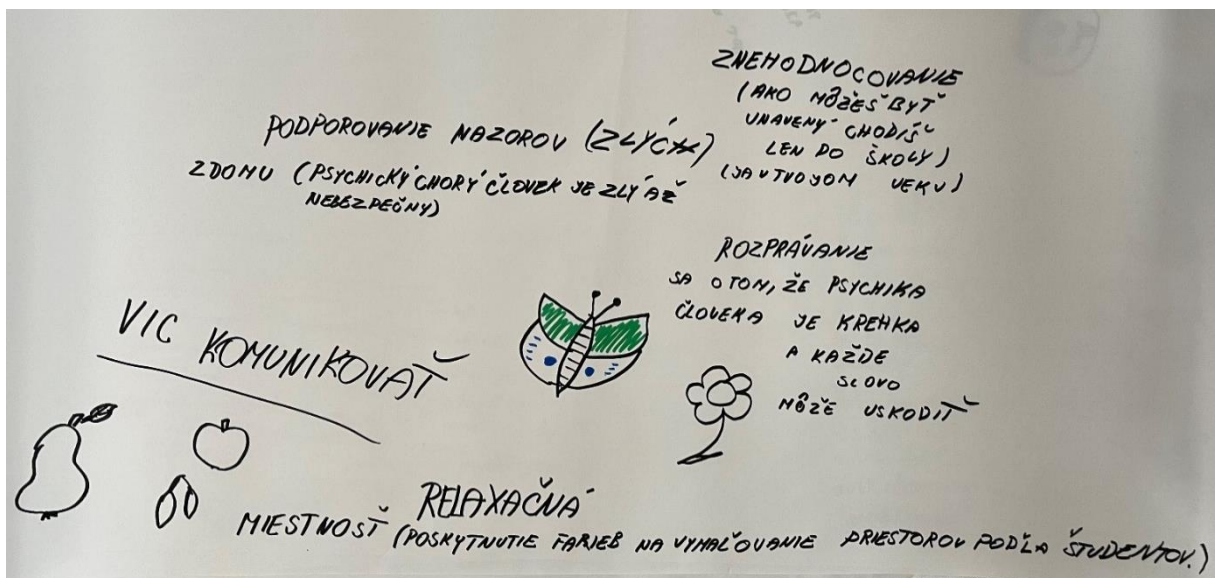 ZNEHODNOCOVANIE
(AKO MÔŽEŠ BYŤ
UNAVENÝ CHODÍŠ
LEN DO ŠKOLY)
(JA V TVOJOM VEKU)
PODPOROVANIE NAZOROV (ZLÝCH)
ZDOMU (PSYCHICKÝ CHORÝ ČLOVEK JE ZLÝ AŽ
NEBEZPEČNY)
ROZPRÁVANIE
SA O TOM, ŽE PSYCHIKA
ČLOVEKA JE KREHKA
A KAŽDE
SLOVO
MÔŽE USKODIŤ
VIC KOMUNIKOVAŤ
RELAXAČNÁ
MIESTNOSŤ (POSKYTNUTIE FARIEB NA VYMAĽOVANIE PRIESTOROV PODĽA ŠTUDENTOV.)